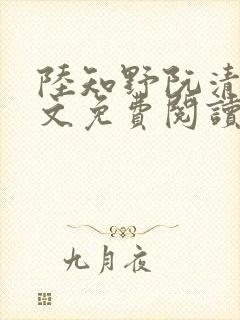 陸知野阮清
文免費閱讀
九月夜